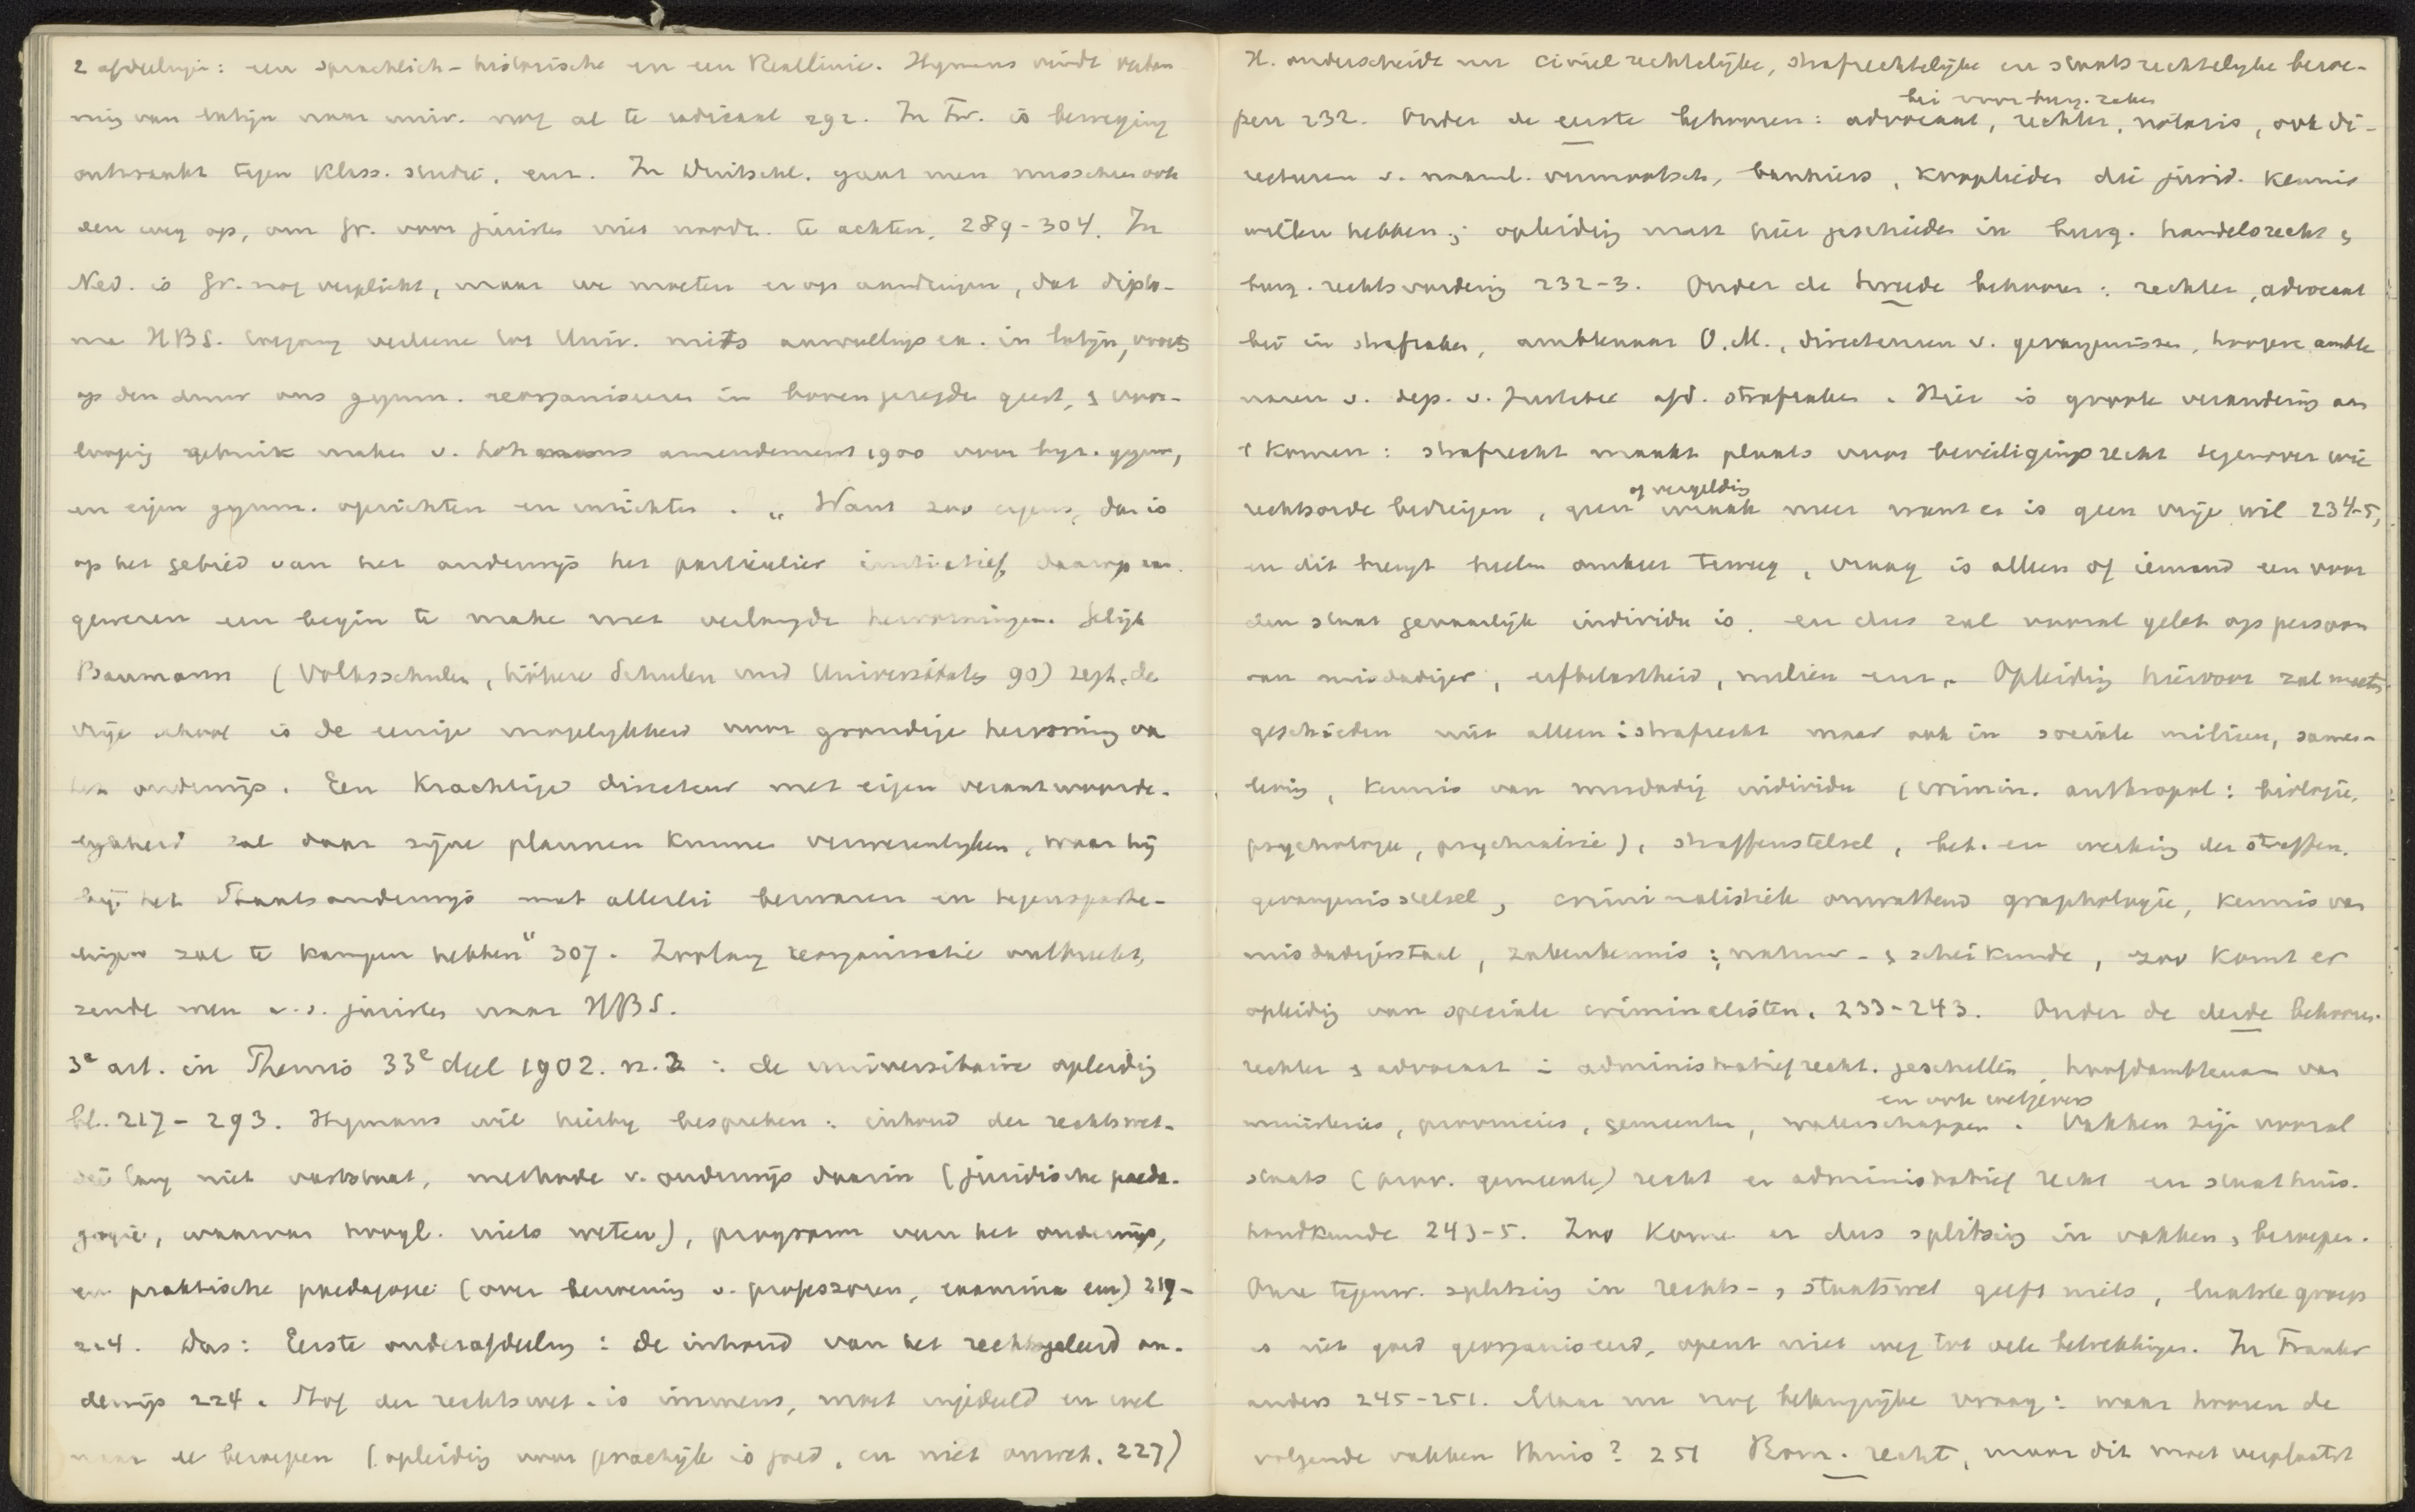 2 afdeelingen: een sprachlich-historische en een Reallinie. Hymans vindt
ning van latijn naar univ. nog al te radicaal 292. In Fr. is beweging
ontwaakt tegen Klass. studie, enz. In Duitschl. gaat men misschien ook
den weg op, om Gr. voor juristen niet noodz. te achten, 289-304. In
Ned. is Gr. nog verplicht, maar we moeten erop aandringen, dat diplo-
ma HBS. toegang verleene tot Univ. mits aanvullingsex. in latijn, voorts
op den duur ons gymn. reorganiseeren in bovengezegden geest, & voor-
loopig gebruik maken v. Lohmans amendement 1900 voor byz. gymn,
en eigen gymn. oprichten en inrichten. „Want zoo ergens, dan is
op het gebied van het onderwijs het particulier initiatief
geweren een begin te maken met verlangde hervormingen. Gelijk
Baumann (Volksschulen, höhere Schulen und Universitäten 90) zegt, de
vrije school is de eenige mogelykheid voor grondige hervorming van
het onderwijs. Een Krachtige directeur met eigen verantwoorde-
lykheid zal daar zijne plannen kunnen verwerenlyken, waar hij
bij het Staatsonderwijs met allerlei bezwaren en tegenspoede-
zal te kampen hebben" 307. Zoolang reorganisatie ontbreekt,
zende men a.s. juristen naar HBS.
3e art. in Themis 33e deel 1902. n. 2: de universitaire opleiding
bl. 217-293. Hymans wil hierby bespreken: inhoud der rechtswet.
die lang niet vaststaat, methode v. onderwijs daarin (juridische paeda-
gogie, waarvan hoogl. niets weten), program van het onderwijs,
en praktische paedagogie (over benoeming v. professoren, examina enz) 219-
224. Dus: Eerste onderafdeeling: De inhoud van het rechtsgeleerd on-
derwijs 224. Stof der rechtswet. is immens, moet ingedeeld en wel
naar de beroepen (opleiding voor practijk is goed, en niet onwet. 227)
H. onderscheidt nu civielrechtelijke, strafrechtelijke en staatsrechtelyke beroe-
pen 232. Onder de eerste behooren: advocaat, rechter, notaris, ook di-
bei voor burg. zaken
recteuren v. naaml. vennootsch, bankiers, kooplieden die jurid. kennis
willen hebben; opleiding moet hier geschieden in burg. handelsrecht &
burg. rechtsvordering 232-3. Onder de tweede behooren: rechter, advocaat
bei in strafzaken, ambtenaar O.M., directeuren v. gevangenissen, hoogere ambte
naren v. dep. v. Justitie afd. strafzaken. Hier is groote verandering aan
't komen: strafrecht maakt plaats voor beveiligingsrecht tegenover wie
rechtsorde bedreigen, geen wraak meer want er is geen vrije wil 234-5,
of vergelding
en dit brengt heelen omkeer teweeg, vraag is alleen of iemand een voor
den staat gevaarlijk individu is, en dus zal vooral gelet op persoon
van misdadiger, erfbelastheid, milieu enz. Opleiding hiervoor zal moeten
geschieden niet alleen i strafrecht maar ook in sociale milieu, samen-
leving, Kennis van misdadig individu (crimin. anthropol: biologie,
psychologie, psychiatrie), straffenstelsel, bet. en werking der straffen,
gevangenisstelsel, criminalistiek omvattend graphologie, kennis van
misdadigerstaal, zakenkennis; natuur- & scheikunde, zoo komt er
opleiding van speciale criminalisten, 233-243. Onder de derde behooren:
rechter & advocaat i administratiefrecht. geschillen, hoofdambtenaren van
ministeries, provincies, gemeenten, waterschappen. Vakken zijn vooral
en ook wetgevers
staats (prov. gemeente) recht en administratief recht en staathuis-
houdkunde 243-5. Zoo kome er dus splitsing in vakken & beroepen.
Onze tegenw. splitsing in rechts- & staatswet geeft niets, laatste groep
is niet goed georganiseerd, opent niet weg tot vele betrekkingen. In Frankr
anders 245-251. Maar nu nog belangrijke vraag: waar hooren de
volgende vakken thuis? 251 Rom. recht, maar dit moet verplaatst